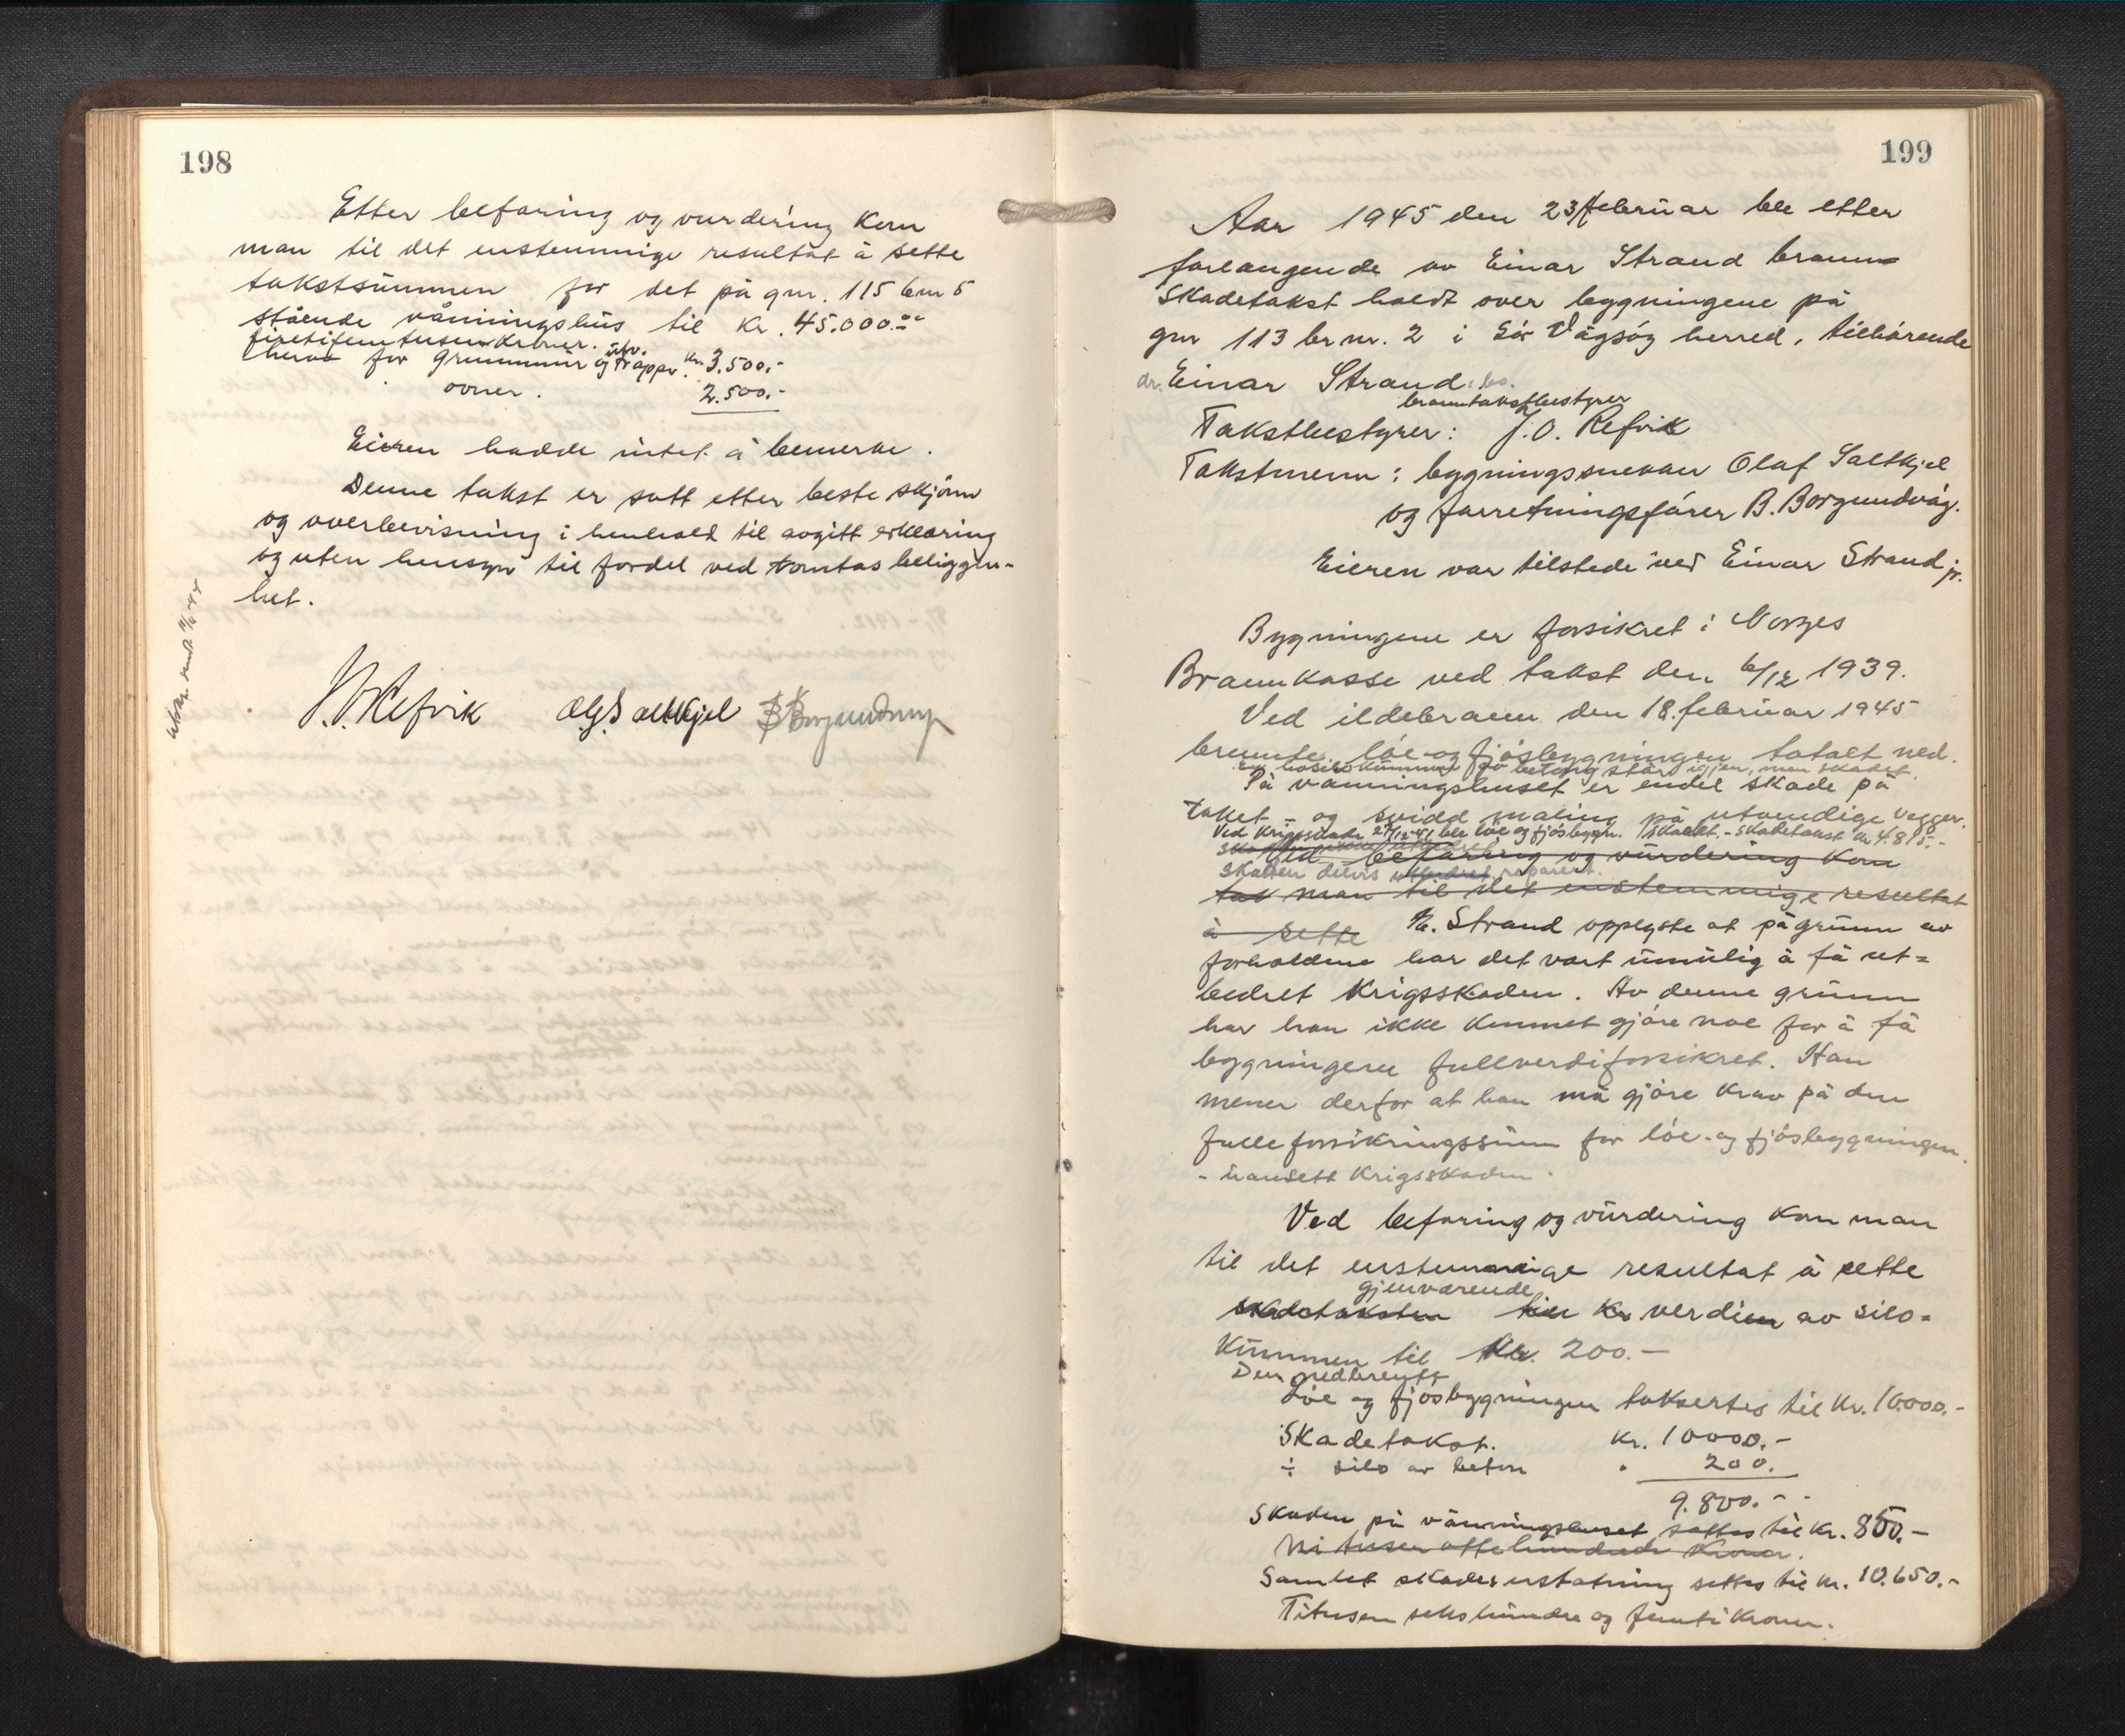 198
Etter befaring og vurdering kom
man til det enstemmige resultat å sette
takstsummen for det på gnr. 115 bnr 5
stående våningshus til kr. 45.000.00
firetifemtusen kroner.
herav for grunnmur og utv. trappe kr. 3.500.-
ovner. 2.500.-
Eieren hadde intet å bemerke.
Denne takst er satt etter beste skjønn
og overbevisning i henhold til avgitt erklæring
og uten hensyn til fordel ved tomtas beliggen-
het.
J.O. Refvik Olaf Saltkjel B. Borgundvåg
199
Aar 1945 den 23/februar ble etter
forlangende av Einar Strand brann=
skadetakst holdt over bygningene på
gnr 113 br nr. 2 i Sør Vågsøy herred, tilhørende
dr. Einar Strand. bo.
branntakstbestyrer
Takstbestyrer: J.O. Refvik
Takstmenn: bygningssnekker Olaf Saltkjel
og forretningsfører B. Borgundvåg.
Eieren var tilstede ved Einar Strand jr.
Bygningene er forsikret i Norges
Brannkasse ved takst den 6/12 1939.
Ved ildebrann den 18. februar 1945
brennte løe- og fjøsbygningen totalt ned.
av betong står igjen, men skadet.
På våningshuset er endel skade på
taket - og svidd maling på utvendige vegger.
Ved krigsskade 27/12-41 ble løe og fjøsbygn. skadt. - Skadetakst kr 4.815.-
Ved befaring og vurdering kom
Skaden delvis utbedret reparert.
tak man til det enstemmige resultat
å sette Hr. Strand opplyste at på grunn av
forholdene har det vært umulig å få ut=
bedret krigsskaden. Av denne grunn
har han ikke kunnet gjøre noe for å få
bygningene fullverdiforsikret. Han
mener derfor at han må gjøre krav på den
fulle forsikringssum for løe- og fjøsbygningen.
- uansett krigsskaden.
Ved befaring og vurdering kom man
til det enstemmige resultat å sette
gjenværende
skadetaksten til kr verdien av silo=
kummen til kr. 200.-
Den nedbrente
Løe og fjøsbygningen taksertes til kr. 10000.-
Skadetakst. kr. 10000.-
÷ silo av beton " 200.
9.800.-
Skaden på våningshuset settes til kr. 850.-
Ni tusen åttehundrede kroner.
Samlet skadeserstatning settes til kr. 10.650.-
Titusen sekshundre og femti kroner.